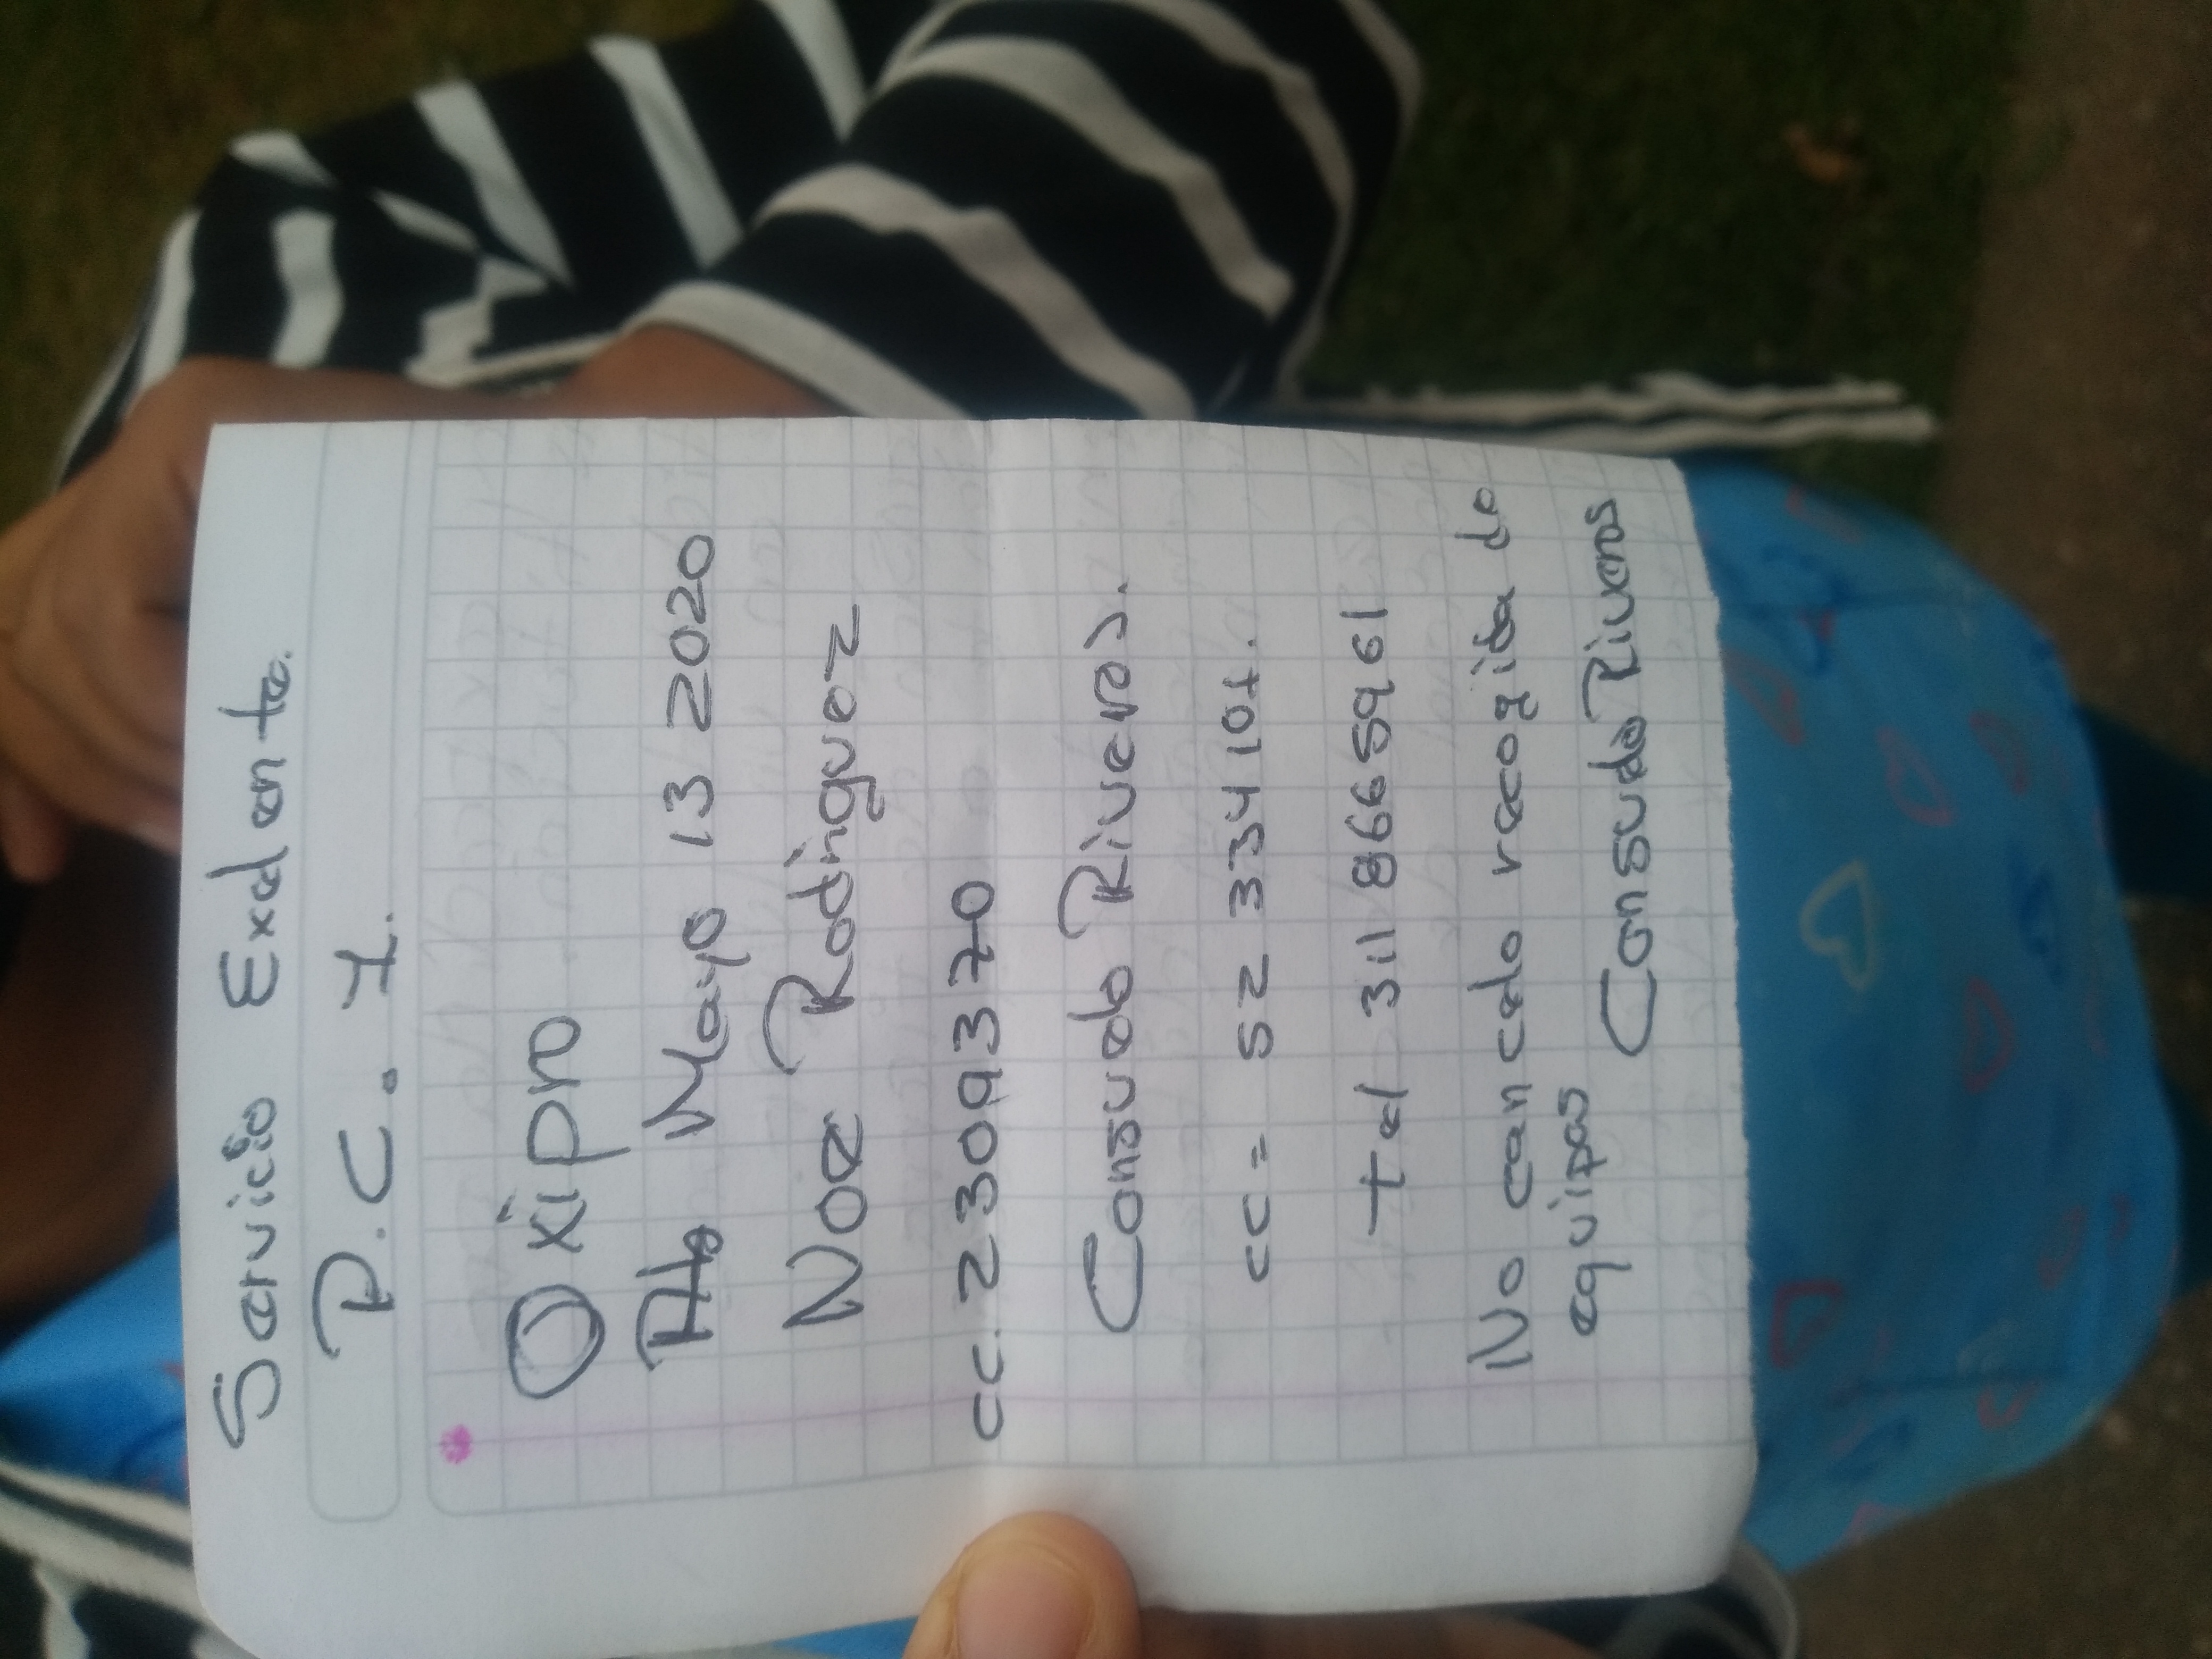 Servicio Exelente.
P.C. 1.
Oxipro
Pto Mayo 13 2020
Noe Rodriguez
cc. 2309370
Consuelo Riveros.
cc = 52 334 101.
tel 311 8665961
No cancelo recogida de
equipos
Consuelo Riveros